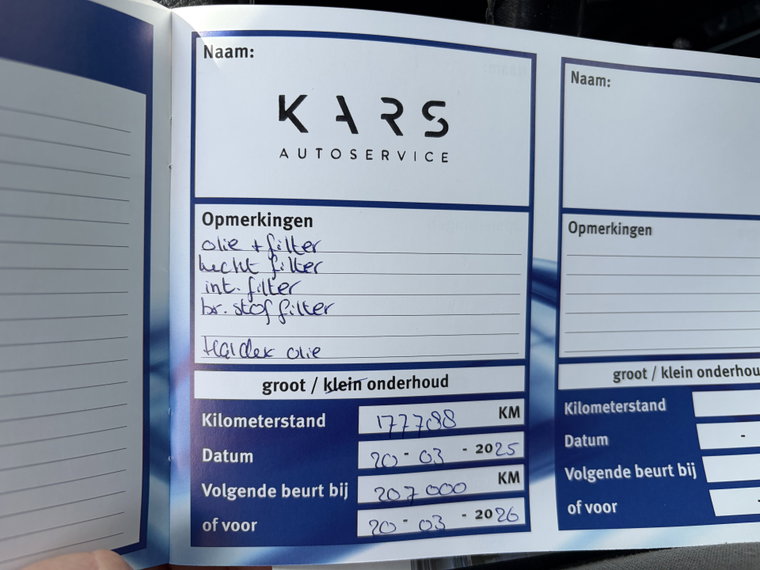 Naam:
KARS
AUTOSERVICE
Opmerkingen
olie + filter
lucht filter
int. filter
br. stof filter
Haldex olie
groot / klein onderhoud
Kilometerstand 177788 KM
Datum 20 - 03 - 2025
Volgende beurt bij 207 000 KM
of voor 20 - 03 - 2026
Naam:
Opmerkingen
groot / klein onderhou
Kilometerstand
Datum -
Volgende beurt bij
of voor